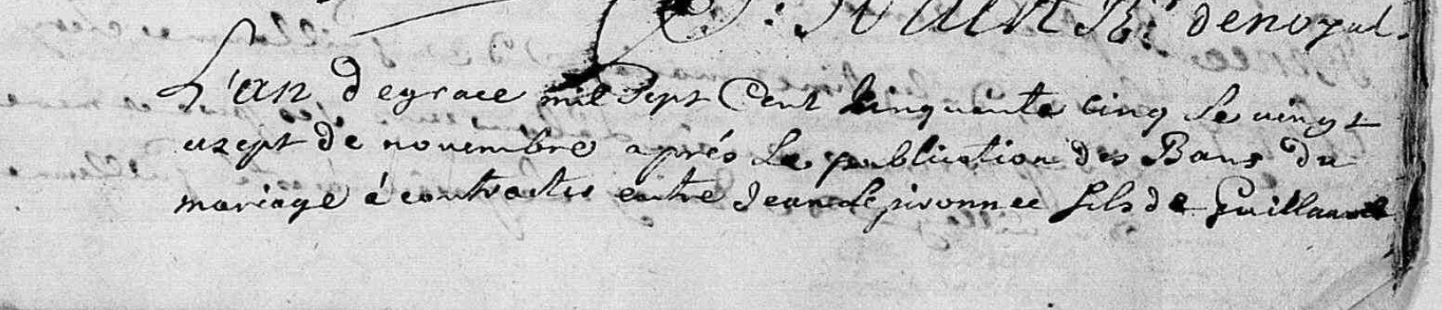 Rr. de noyal.
L'an de grace mil Sept Cent Cinquante cinq Le vingt
et sept de novembre après La publication des Bans du
mariage a contracter entre Jean Le pironnec fils de Guillaume